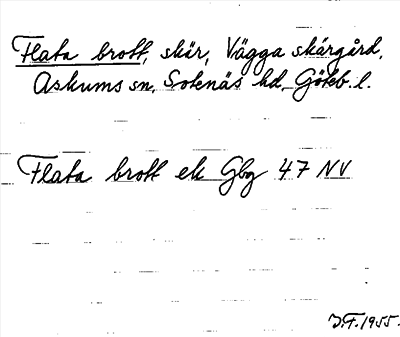 Flata brott, skär, Vägga skärgård,
Askums sn, Sotenäs hd, Göteb. l.
Flata brott ek Gbg 47 NV
J.F. 1955.